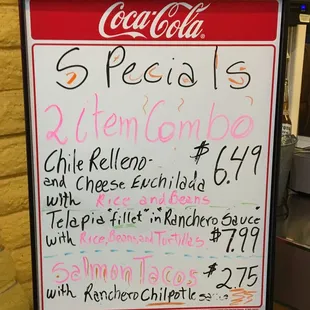 Coca-Cola
Specials
2 item Combo
Chile Relleno- $6.49
and Cheese Enchilada
with Rice and Beans
Telapia "fillet" in Ranchero Sauce
with Rice, Beans, and Tortillas $7.99
Salmon Tacos $2.75
with Ranchero Chilpotle sauce